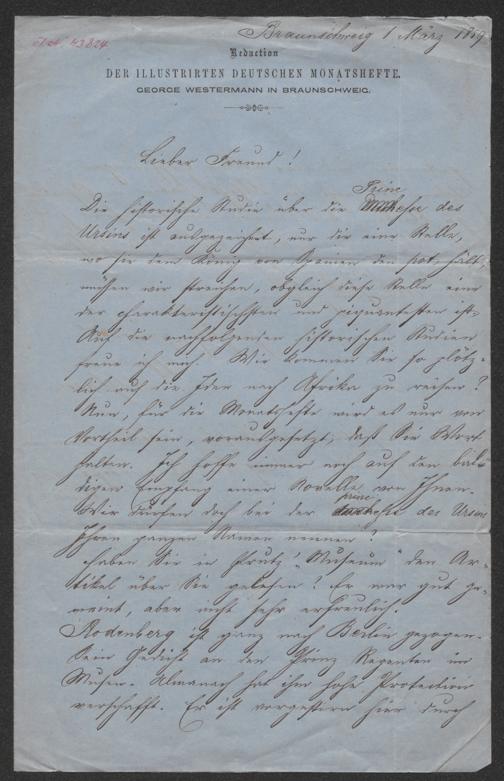 Braunschweig 1 März 1859
Redaction
DER ILLUSTRIRTEN DEUTSCHEN MONATSHEFTE.
GEORGE WESTERMANN IN BRAUNSCHWEIG.
Lieber Freund!
Prinz
Die historische Studie über die des
Ursins ist ausgezeichnet, nur die eine Stelle,
wo sie dem König von Spanien den pot hält,
müssen wir streichen, obgleich diese Stelle eine
der charakteristischsten und piquantesten ist.
Auf die nachfolgenden historischen Studien
freue ich mich. Wie kommen Sie so plötz-
lich auf die Idee nach Afrika zu reisen?
Nun, für die Monatshefte wird es nur von
Vortheil sein, vorausgesetzt, daß Sie Wort
halten. Ich hoffe immer noch auf den bal-
digen Empfang einer Novelle von Ihnen.
prinz
Wir dürfen doch bei der des Ursins
Ihren ganzen Namen nennen?
Haben Sie in Prutz' "Museum" den Ar-
tikel über Sie gelesen? Er war gut ge-
meint, aber nicht sehr erfreulich.
Rodenberg ist ganz nach Berlin gezogen.
Sein Gedicht an den Prinz Regenten im
Musen-Almanach hat ihm hohe Protection
verschafft. Er ist vorgestern hier durch